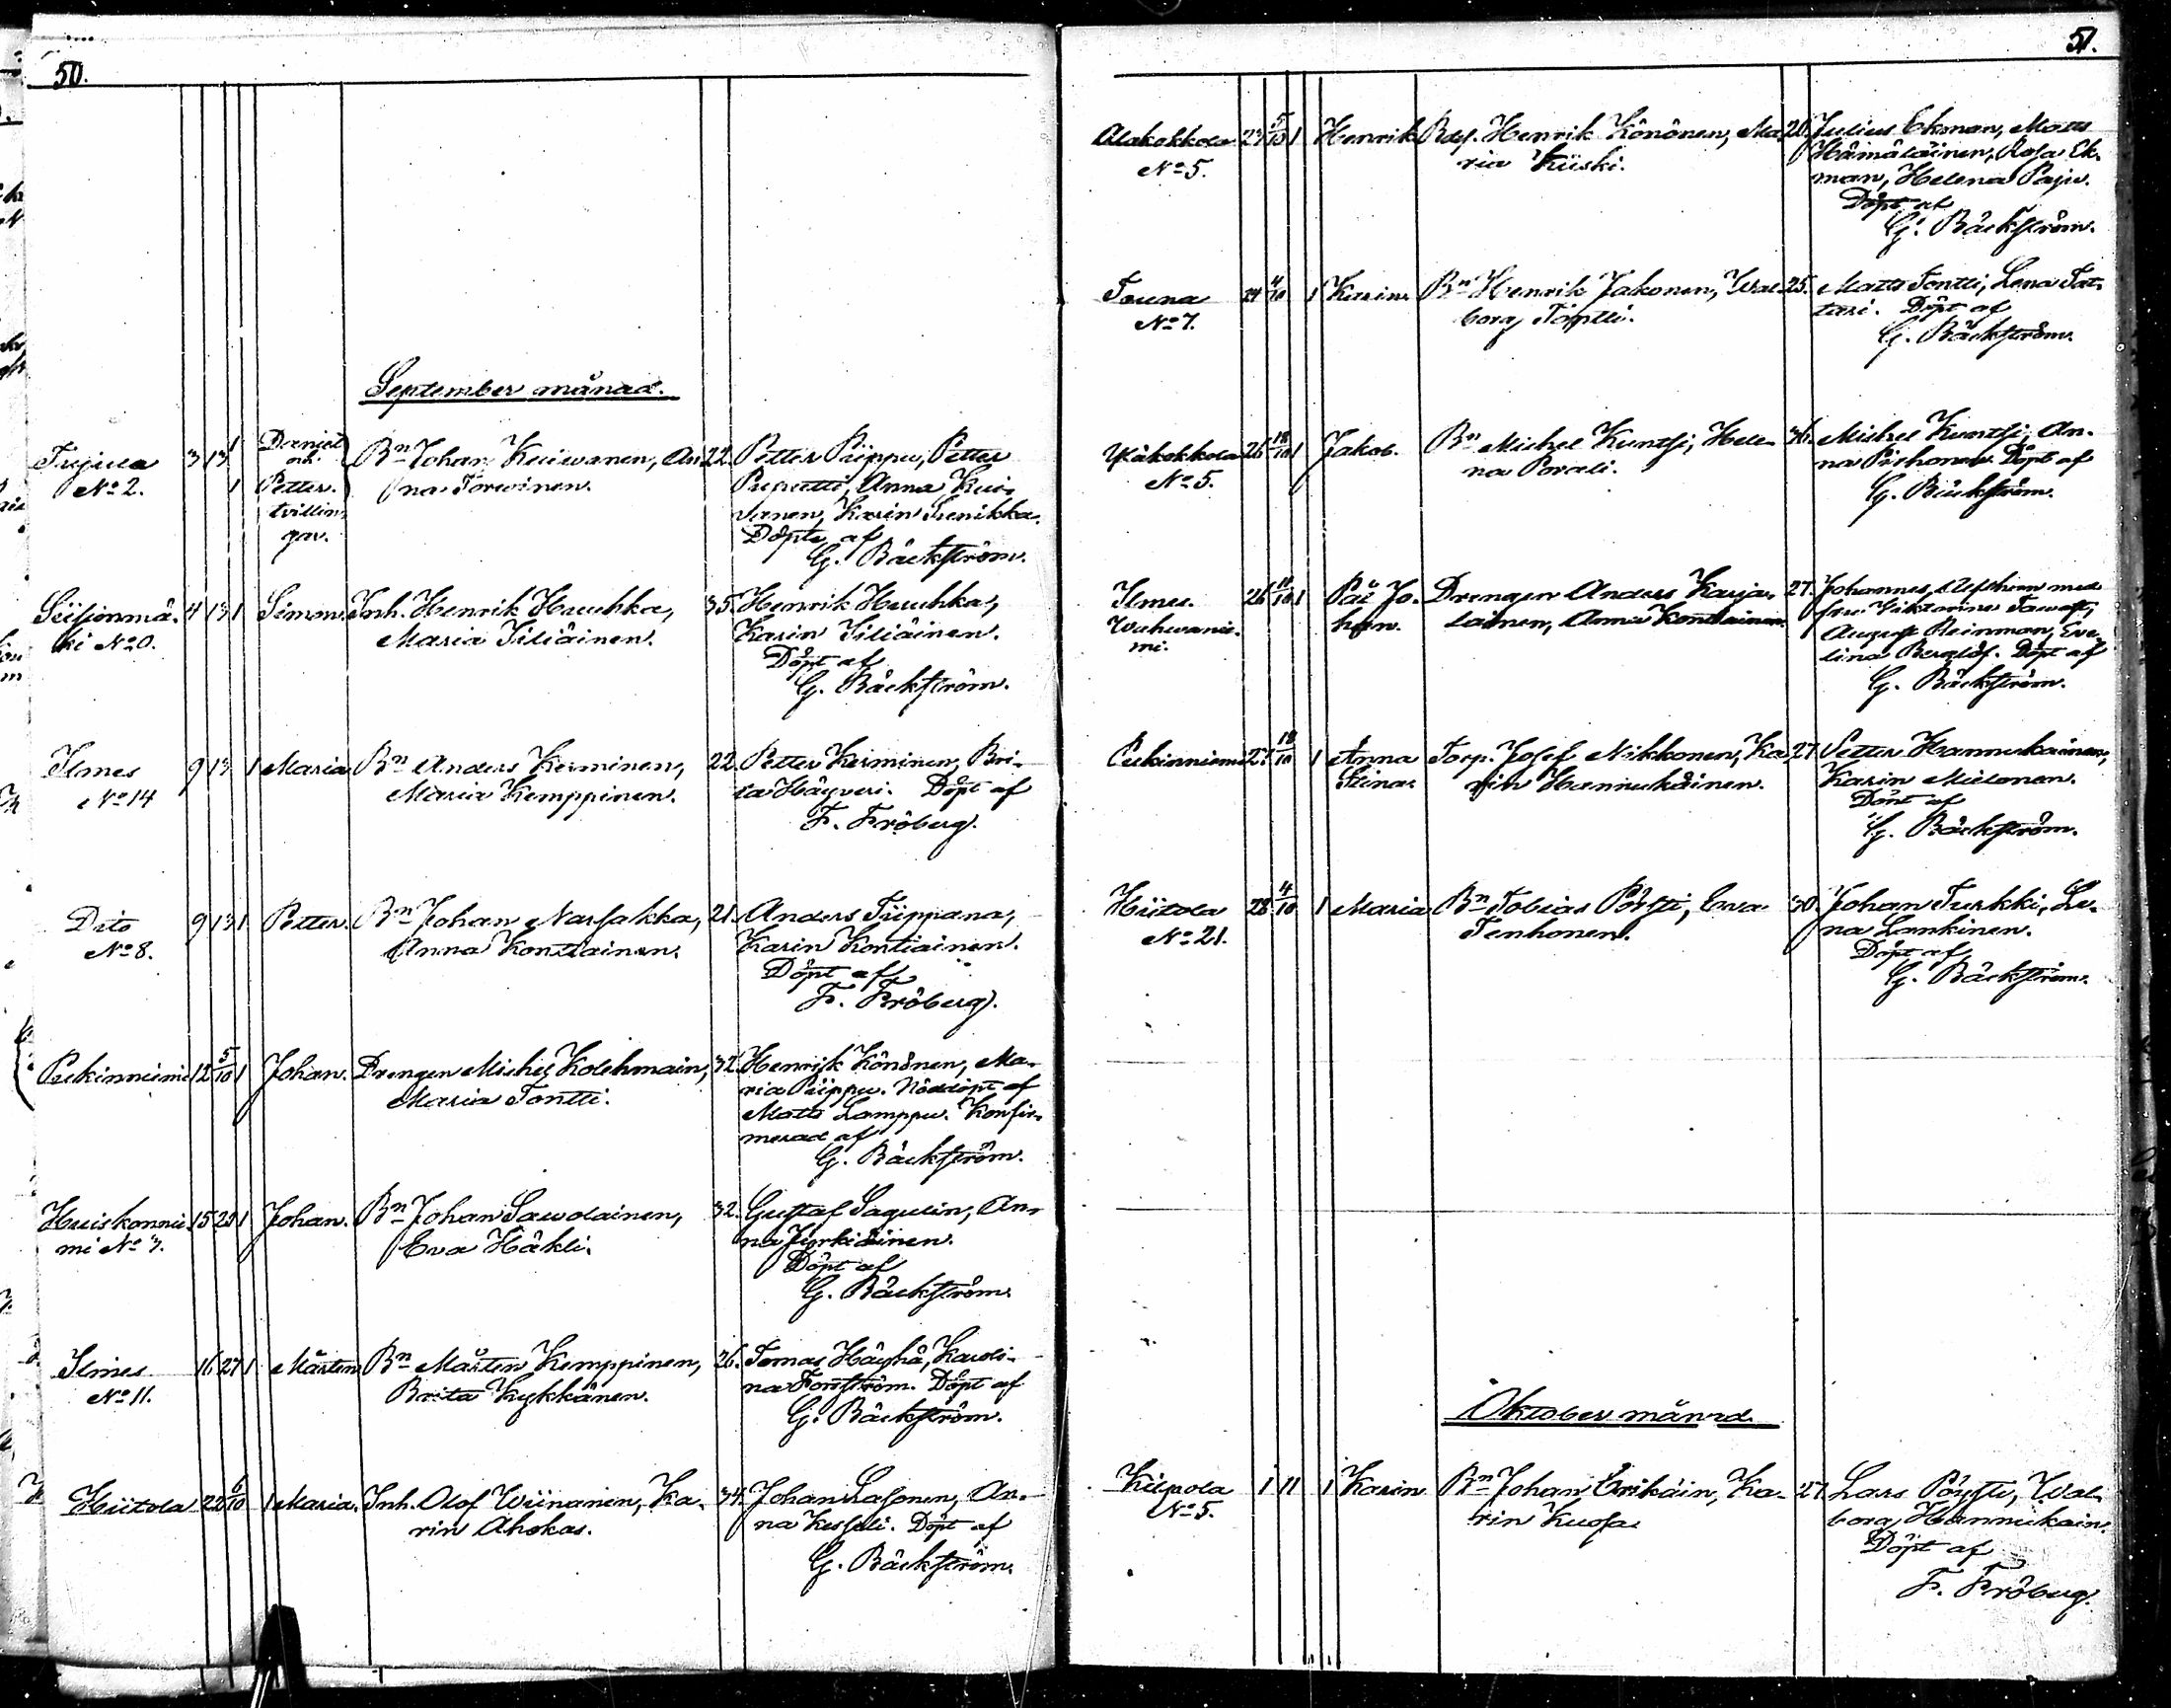 50.
September månad.
Trijula 3 13 1 Daniel
och
Nº 2. 1 Petter.
tvillin-
gar.
Bn Johan Kuiwanen, An- 22.
na Torwinen.
Petter Piippu, Petter
Puputti, Anna Kui-
vanen, Karin Trenikka.
Döpte af
G. Bäckström.
Siisionmä- 4 13 1 Simon. Inh. Henrik Huuhka, 35.
ki Nº 0. Maria Siliäinen.
Henrik Huuhka,
Karin Siliäinen.
Döpt af
G. Bäckström.
Ilmes 9 13 1 Maria Bn Anders Kerminen, 22.
Nº 14 Maria Kemppinen.
Petter Kerminen, Bri-
ta Häyveri. Döpt af
F. Fröberg.
Dito 9 13 1 Petter. Bn Johan Narsakka, 21.
Nº 8. Anna Kontiainen.
Anders Tiippana,
Karin Kontiainen.
Döpt af
F. Fröberg.
Pukinniemi 12 5/10 1 Johan. Drengen Michel Kolehmain, 32.
Maria Tontti.
Henrik Könönen, Ma-
ria Piippu. Nöddöpt af
Matts Lamppu. Konfir-
merad af
G. Bäckström.
Huiskonnie- 15 20 1 Johan. Bn Johan Sawolainen, 32.
mi Nº 3. Eva Häkli.
Gustaf Sagulin, An-
na Jyrkiäinen.
Döpt af
G. Bäckström.
Ilmes 16 27 1 Mårten Bn Mårten Kemppinen, 26.
Nº 11. Brita Kykkänen.
Tomas Häyhä, Karoli-
na Forsström. Döpt af
G. Bäckström.
Hiitola 22 6/10 1 Maria. Inh. Olof Wiinanen, Ka- 34.
rin Ahokas.
Johan Lasonen, An-
na Kesseli. Döpt af
G. Bäckström.
51.
Alakokkola 23 5/10 1 Henrik Henrik Könönen, Ma- 20.
Nº 5. ria Kiiski.
Julius Ekman, Matts
Hämäläinen, Rosa Ek-
man, Helena Paju.
Döpt af
G. Bäckström.
Touna 24 4/10 1 Karin Bn Henrik Jakonen, Wal- 25.
Nº 7. borg Tontti.
Matts Tontti, Lena Tat-
tari. Döpt af
G. Bäckström.
Yläkokkola 26 18/10 1 Jakob. Bn Michel Kuntsi, Hele- 36.
Nº 5. na Porali.
Michel Kuntsi, An-
na Pishonen. Döpt af
G. Bäckström.
Ilmes 26 10/10 1 Pål Jo- Drengen Anders Karja- 27.
Wahwanie- han. lainen, Anna Kontiainen.
mi.
Johannes Alfthan med
fru Viktorine Tawast,
August Reinman, Eve-
lina Berglöf. Döpt af
G. Bäckström.
Pukinniemi 27 18/10 1 Anna Torp. Josef Nikkonen, Ka- 27.
Stina. rin Hannukainen.
Petter Hannukainen,
Karin Milonen.
Döpt af
G. Bäckström.
Hiitola 28 4/10 1 Maria Bn Tobias Pöysti, Ewa 30.
Nº 21. Tenhonen.
Johan Turkki, Le-
na Lankinen.
Döpt af
G. Bäckström.
Oktober månad.
Kilpola 1 11 1 Karin Bn Johan Erikäin, Ka- 27.
Nº 5. rin Kuosa
Lars Pöysti, Wal-
borg Hannukain.
Döpt af
F. Fröberg.